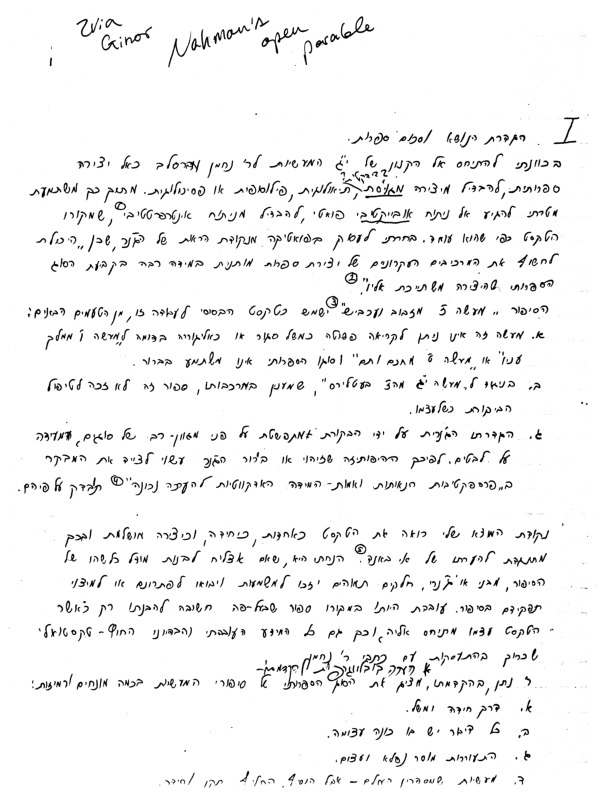 Zvia
Ginor
Nahman's
open
parable
I
הגדרת הנושא וסיווג ספרותי.
בכוונתי להתיחס אל הקנון של י"ג המעשיות לר' נחמן מברסלב כאל יצירה
ספרותית, להבדיל מיצירה תיאולוגית, פילוסופית או פסיכולוגית. מתוך כך משתמעת
מטרתי להגיע אל ניתוח אובייקטיבי פואטי, להבדיל מניתוח אינטרפרטטיבי ①, שמקורו
הטקסט כפי שהוא עומד. בחרתי לעסוק בפואטיקה מנקודת הראות של הז'נר, שכן "היכולת
לחשוף את המרכיבים העקרונים של יצירת ספרות מותנית במידה רבה בקביעת הסוג
הספרותי שהיצירה משתייכת אליו". ②
הסיפור "מעשה מזבוב ועכביש" ③ ישמש כטקסט הבסיסי לעבודה זו, מן הטעמים הבאים:
א. מעשה זה אינו ניתן לקריאה פשוטה כמשל סגור או כאליגוריה בדומה ל"מעשה ו' ממלך
עניו" או "מעשה ט' מחכם ותם" וסוגו הספרותי אינו משתמע בברור.
ב. בניגוד ל"מעשה י"ג מהז' בעטלירס", שמעטן במורכבותו, ספור זה לא זכה לטיפול
הביקורת כשלעצמו.
ג. הגדרתו הז'נרית על ידי הבקורת מתפשטת על פני מגוון-רב של סוגים, ומעידה
על לבטים. לפיכך ההיפותיזה שזיהוי או בירור הז'נר עשוי לצייד את המבקר
ב"פרספקטיבות הנאותות ואמות-המידה האדקווטיות להערכה נכונה" ④ תיבדק על פיהם.
נקודת המוצא שלי רואה את הטקסט כאחדות, כיחידה, וכיצירה מושלמת ובכך
מתנגדת להערתו של אי. באנד. ⑤ הנחתי היא, שאם אצליח לבנות מודל כלשהו של
הסיפור, מבני או ז'נרי, חלקים תמוהים יזכו למשמעות ויבואו לפתרונם או למיצוי
תפקידם בסיפור. עובדת היותו במקורו ספור שבעל-פה חשובה להבנתו רק כאשר
הטקסט עצמו מתיחס אליה, וכך גם כל המידע העובדתי והבדיוני החוץ-טקסטואלי
שכרוך בהתעסקות עם כתבי ר' נחמן.
ר' נתן, בהקדמתו, מציג את הסוג הספרותי של סיפורי המעשיות בכמה מונחים ורמיזות:
א. דרך חידה ומשל.
ב. כל דיבור יש בו כונה עצומה.
ג. התעוררות מוסר נפלא ועצום.
ד. מעשיות שמספרין העולם - אבל הוסיף, החליף, תקן וחידד.